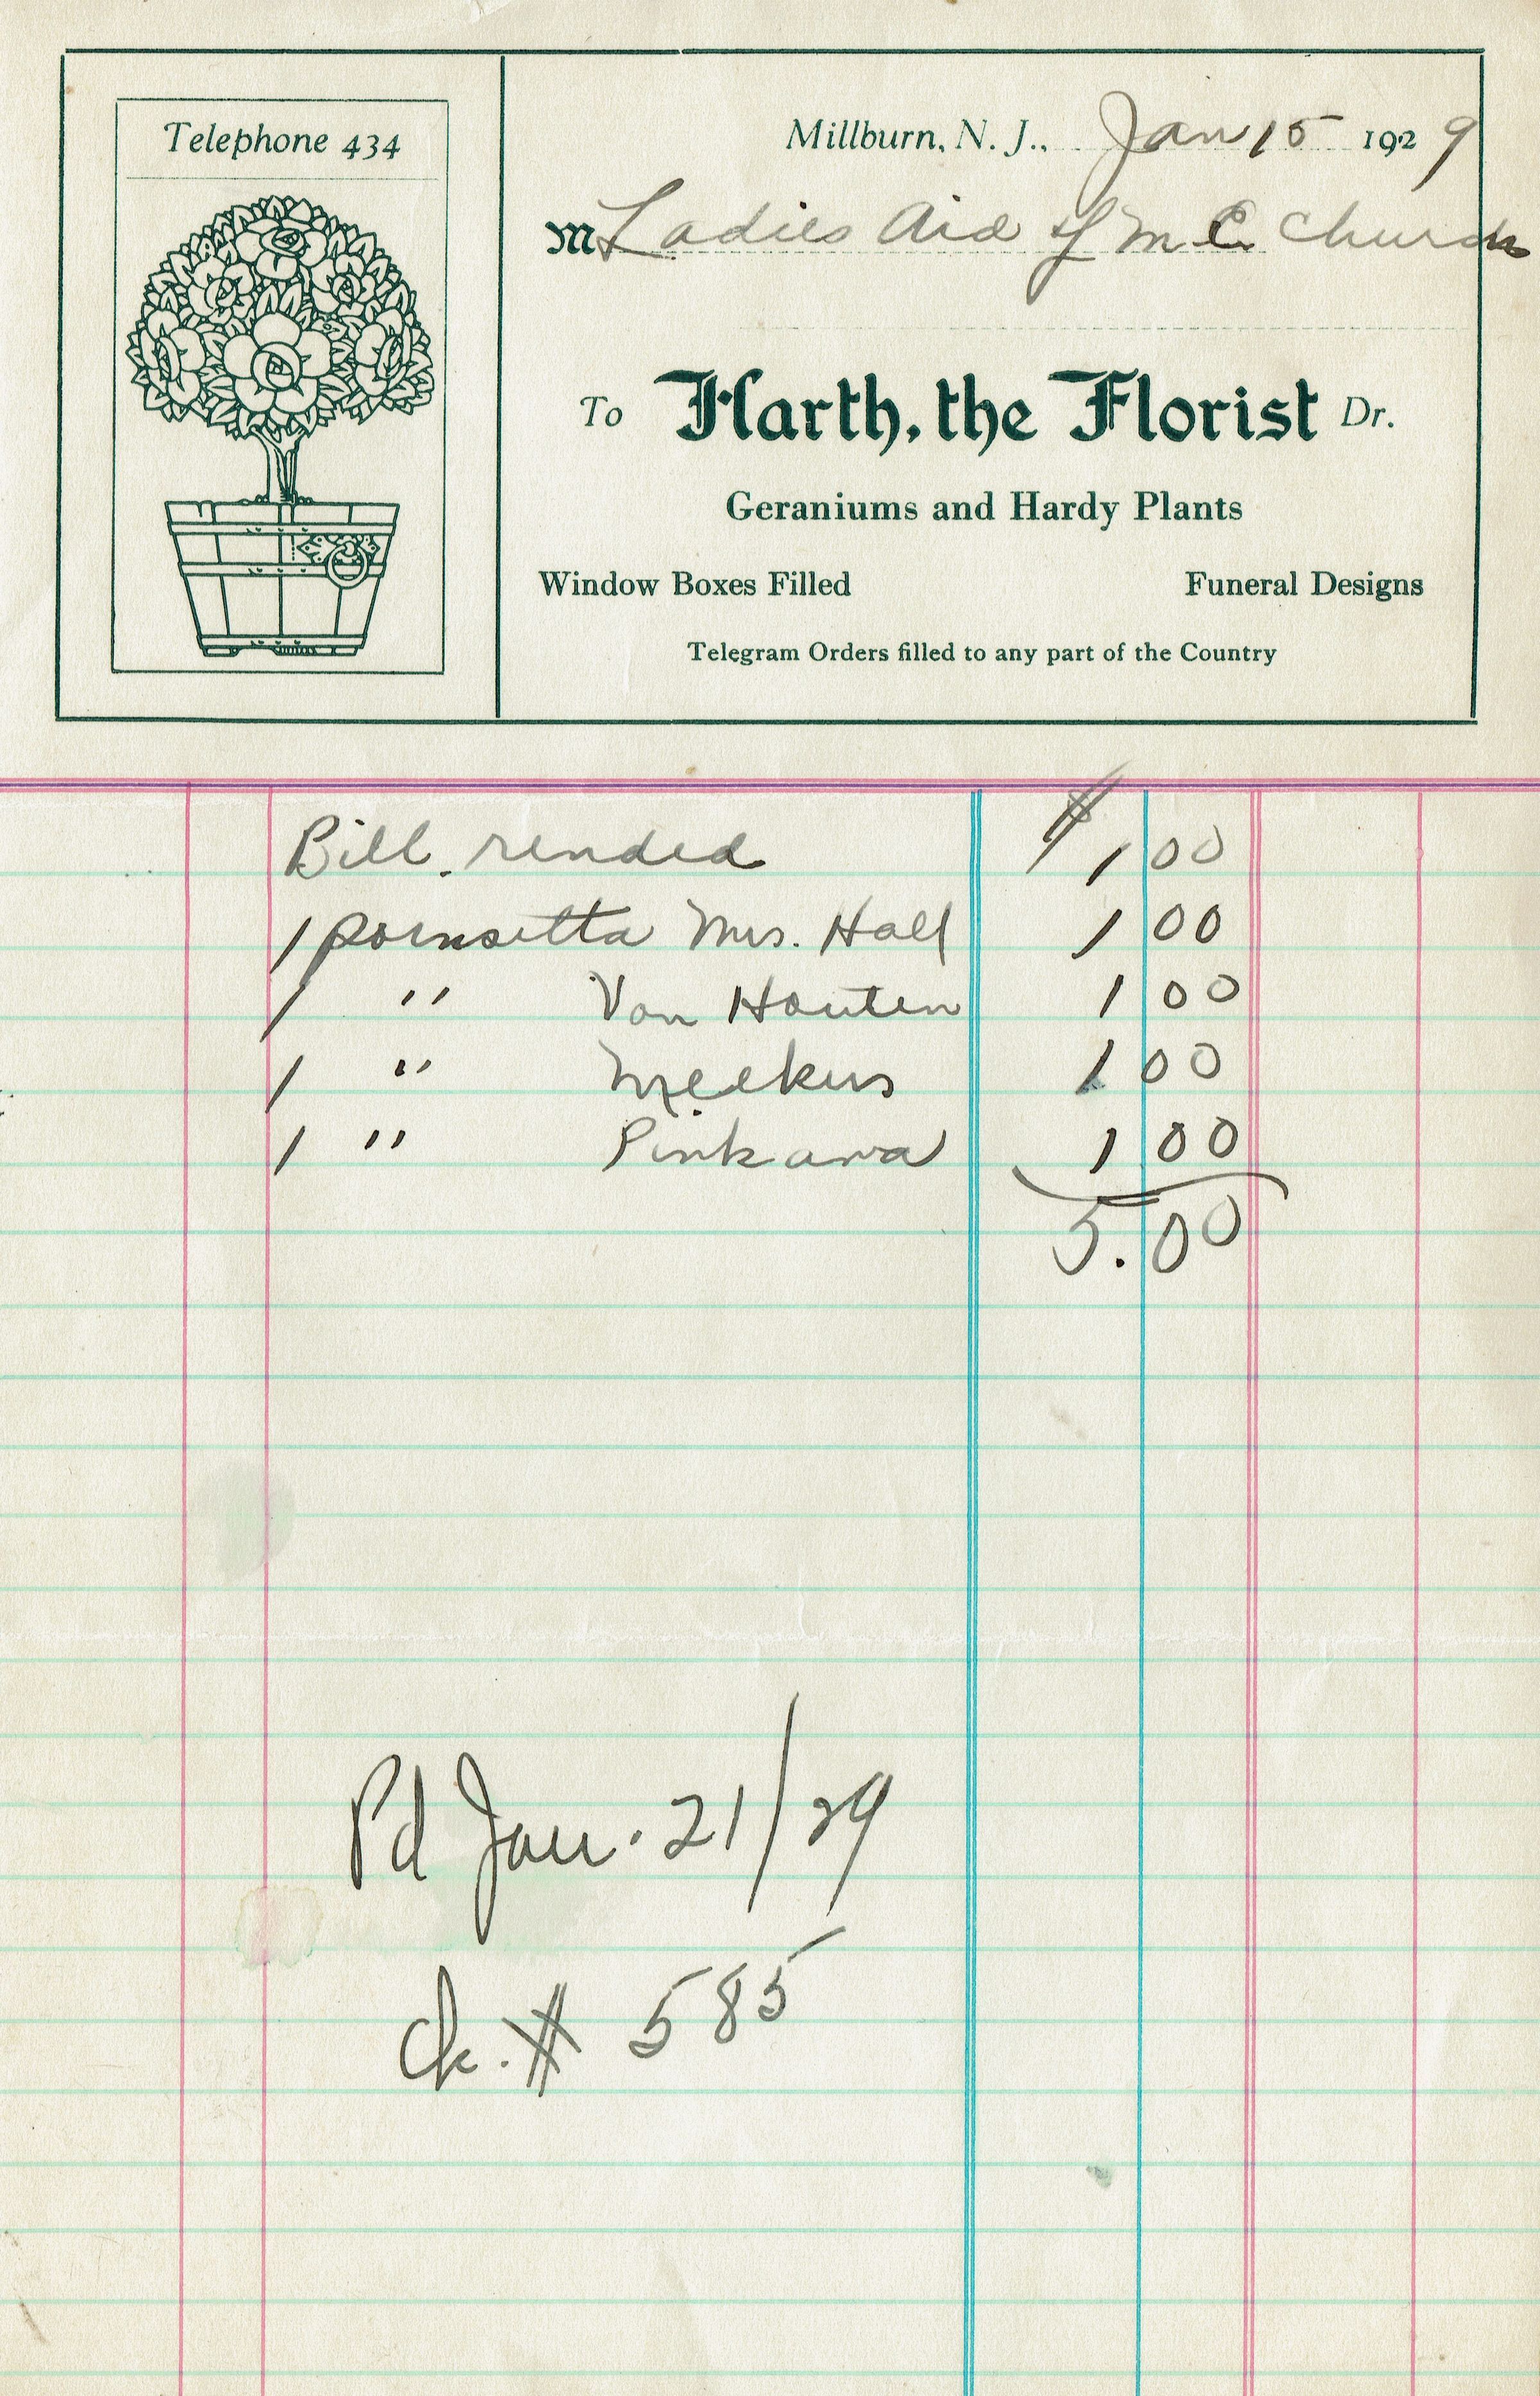 Telephone 434
Millburn, N. J., Jan 15 1929
M Ladies Aid of M E Church
To Harth, the Florist Dr.
Geraniums and Hardy Plants
Window Boxes Filled Funeral Designs
Telegram Orders filled to any part of the Country
Bill. rended $ 1 00
1 poinsetta Mrs. Hall 1 00
1 " Van Houten 1 00
1 " Meekers 1 00
1 " Pinkava 1 00
5.00
Pd Jan. 21/29
Ck. # 585